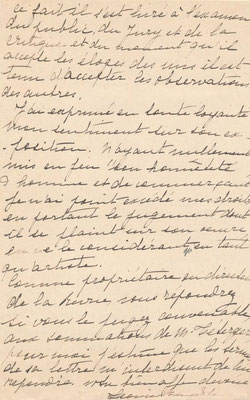 ce fait il s'est livré à l'examen
du public, du Jury et de la
critique et du moment qu'il
accepte les éloges des uns il est
tenu d'accepter les observations
des autres.
J'ai exprimé en toute loyauté
mon sentiment sur son ex-
position. N'ayant nullement
mis en jeu son honnêteté
d'homme et de commerçant
je n'ai point excédé mes droits
en portant le jugement dont
il se plaint sur son œuvre
en le considérant en tant
qu'artiste.
Comme propriétaire ou directeur
de la Revue vous répondrez
si vous le jugez convenable
aux sommations de Mr
pour moi j'estime que les termes
de sa lettre m'interdisent de lui
répondre